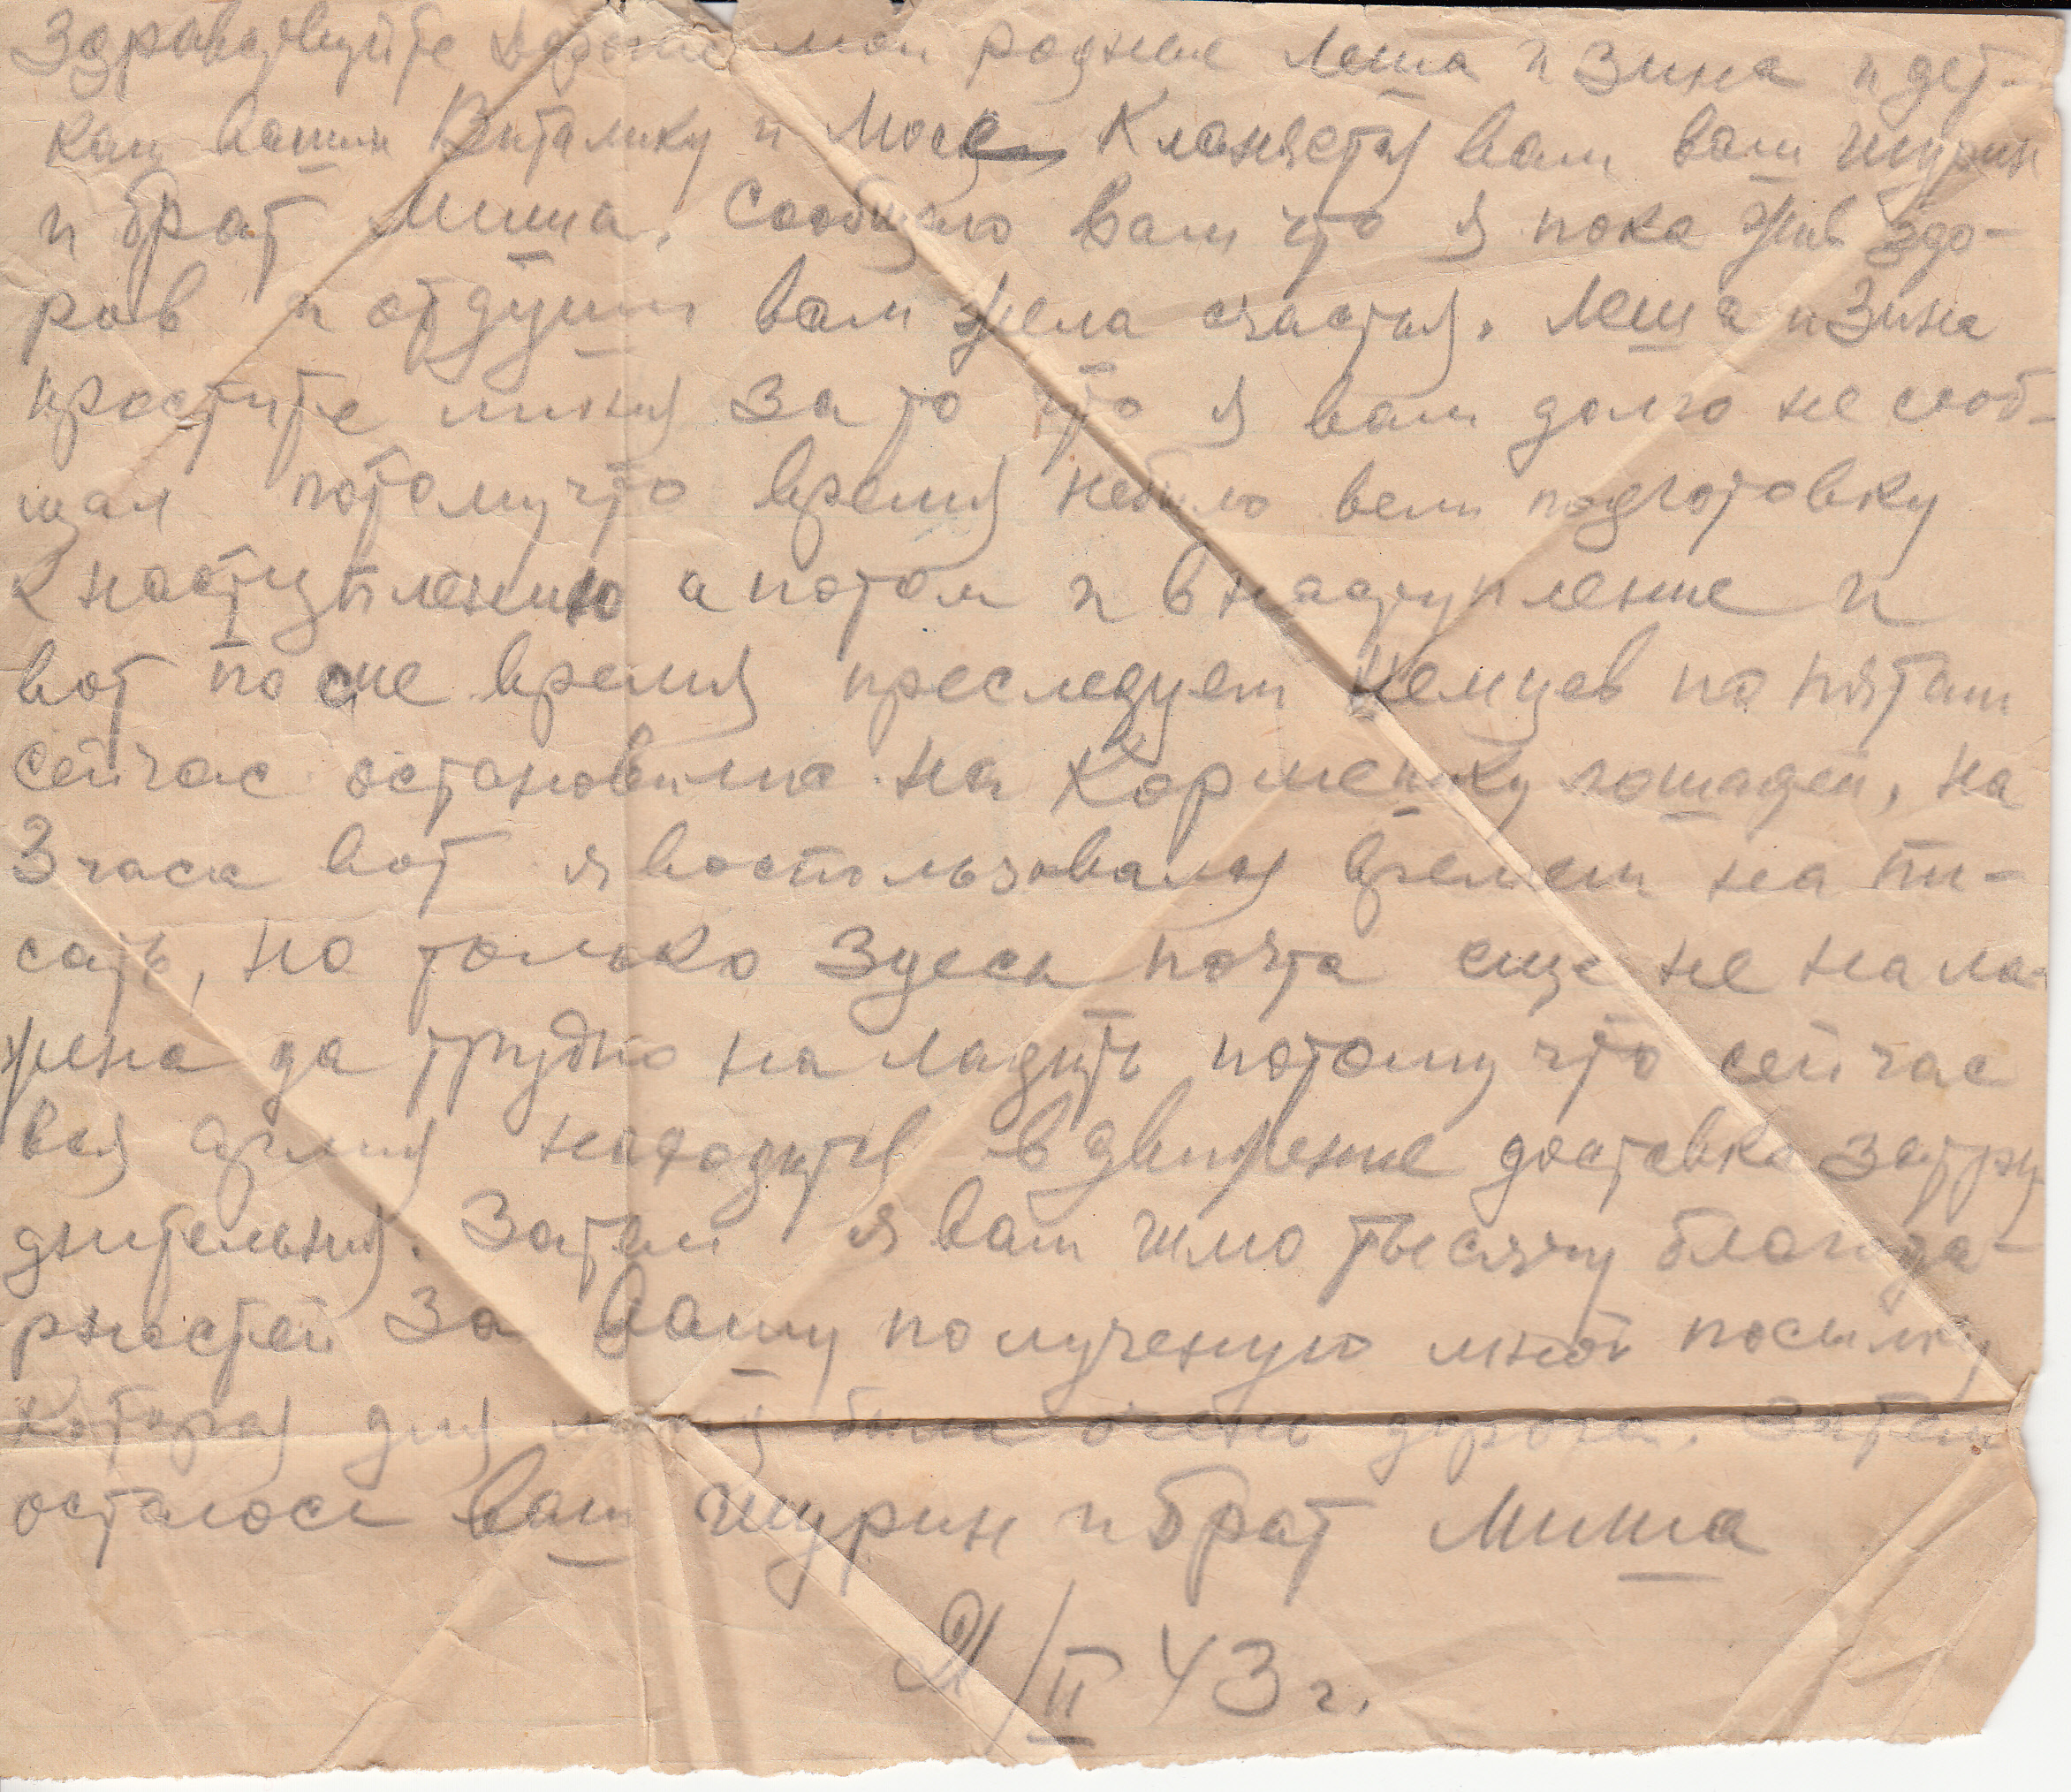 Здравствуйте Дорогие мои родные Леша и Зина и дет-
кам вашим Виталику и Кланяется вам ваш шурин
и брат Миша. Сообщаю вам что я пока жив здо-
ров и от души вам жела счастья. Леша и Зина
простите миня за то что я вам долго не сооб-
щал потому что время небыло вели подготовку
к наступлению а потом и в наступление и
вот по сие время преследуем Немцев по пятам
сейчас остановились на Кормешку лошадей, на
3 часа вот я воспользовался время на пи-
сать, но только Здесь почта еще не нала-
жена да трудно наладить потому что сейчас
вся армия находиться в движение доставка затру-
днительная. Затем я вам шлю тысячу благода-
рностей За Вашу полученую мной посылку
которая для миня была очень дорога. Затем
остаюсь ваш шурин и брат Миша
21/II 43 г.